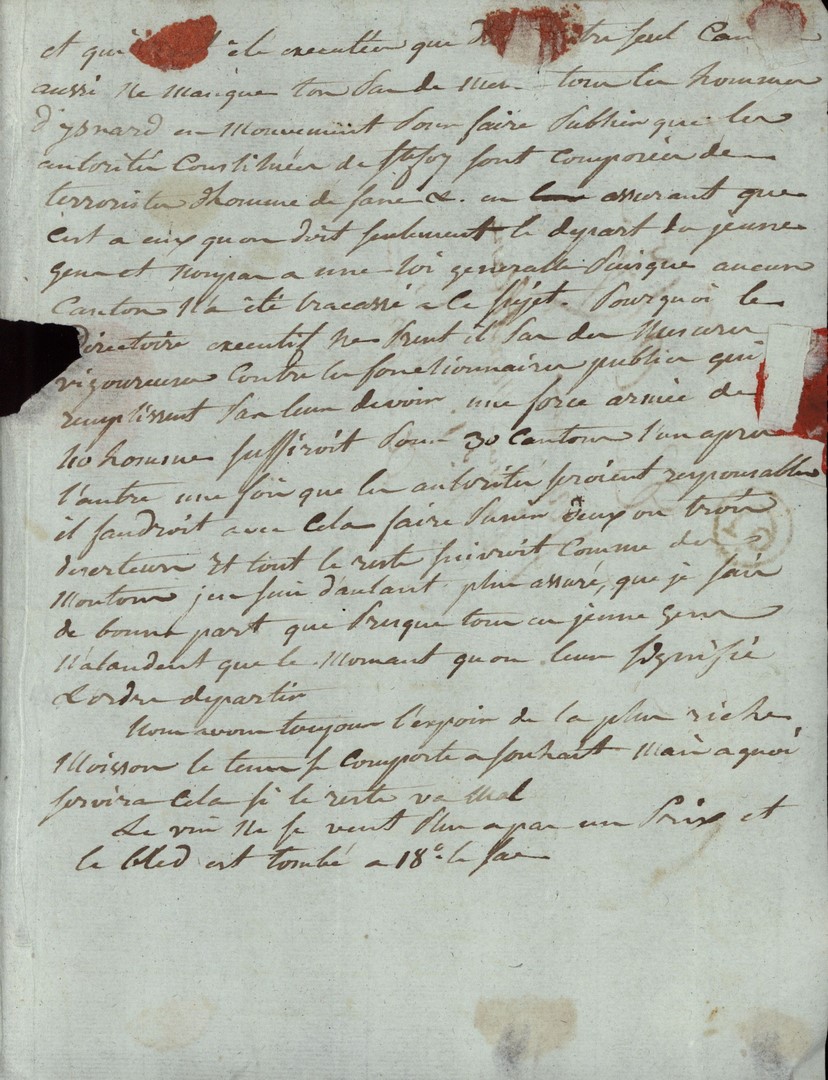 et qui été executtée que dans notre seul Can
aussi ne manque ton pas de mes tous les hommes
d'ysnard en mouvement pour faire publier que les
autorités Constituées de stefoy sont composées de
terroristes d'homme de sanc &. en assurant que
c'est a eux qu'on doit seulement le depart du jeunes
gens et non pas a une loi generalle puisque aucun
Canton n'a été tracassé a ce sujet. Pourquoi le
Directoire executif ne prent il pas des mesures
vigoureuses Contre les fonctionnaires publics qui
remplissent pas leur devoir une force armée de
40 hommes suffiroit pour 30 Cantons l'un apres
l'autre une fois que les autorités seroient responsables
il faudroit avec Cela faire punir deux ou trois
deserteurs et tout le reste suivroit Comme des
moutons j'en suis d'autant plus assuré, que je sais
de bonne part que presque tous ces jeunes gens
n'atandent que le momant qu'on leur signifie
L'ordre de partir
Nous avons toujour l'espoir de la plus riche
Moisson le tems se Comporte a souhait mais a quoi
servira Cela si le reste va mal
Le vin ne se vent plus a pas un prix et
le bled est tombé a 18 le sac